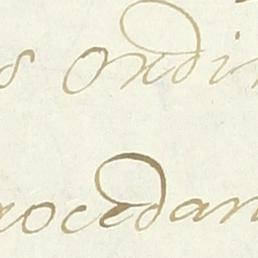 s ordin
rocedan